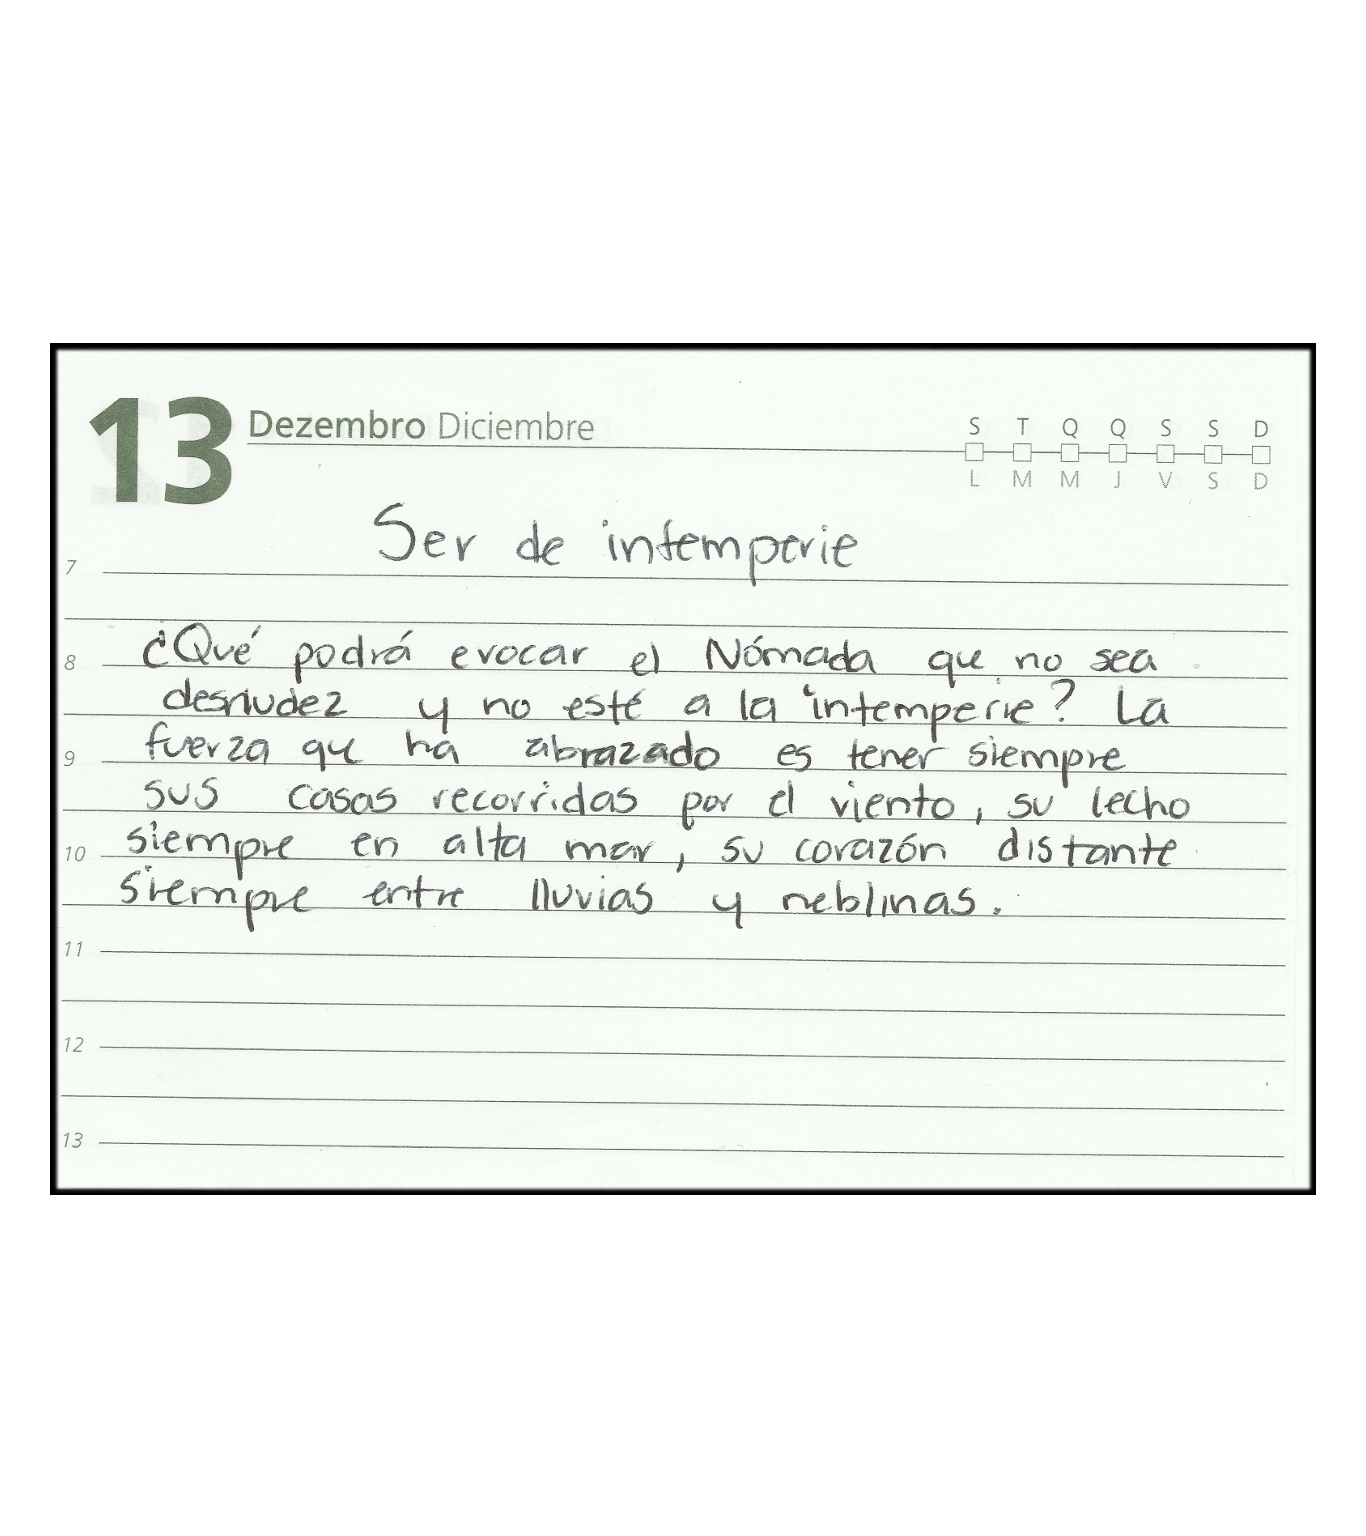 13 Dezembro Diciembre
S T Q Q S S D
L M M J V S D
Ser de intemperie
7
8 ¿Qué podrá evocar el Nómada que no sea
desnudez y no esté a la intemperie? La
9 fuerza que ha abrazado es tener siempre
sus casas recorridas por el viento, su lecho
10 siempre en alta mar, su corazón distante
siempre entre lluvias y neblinas.
11
12
13